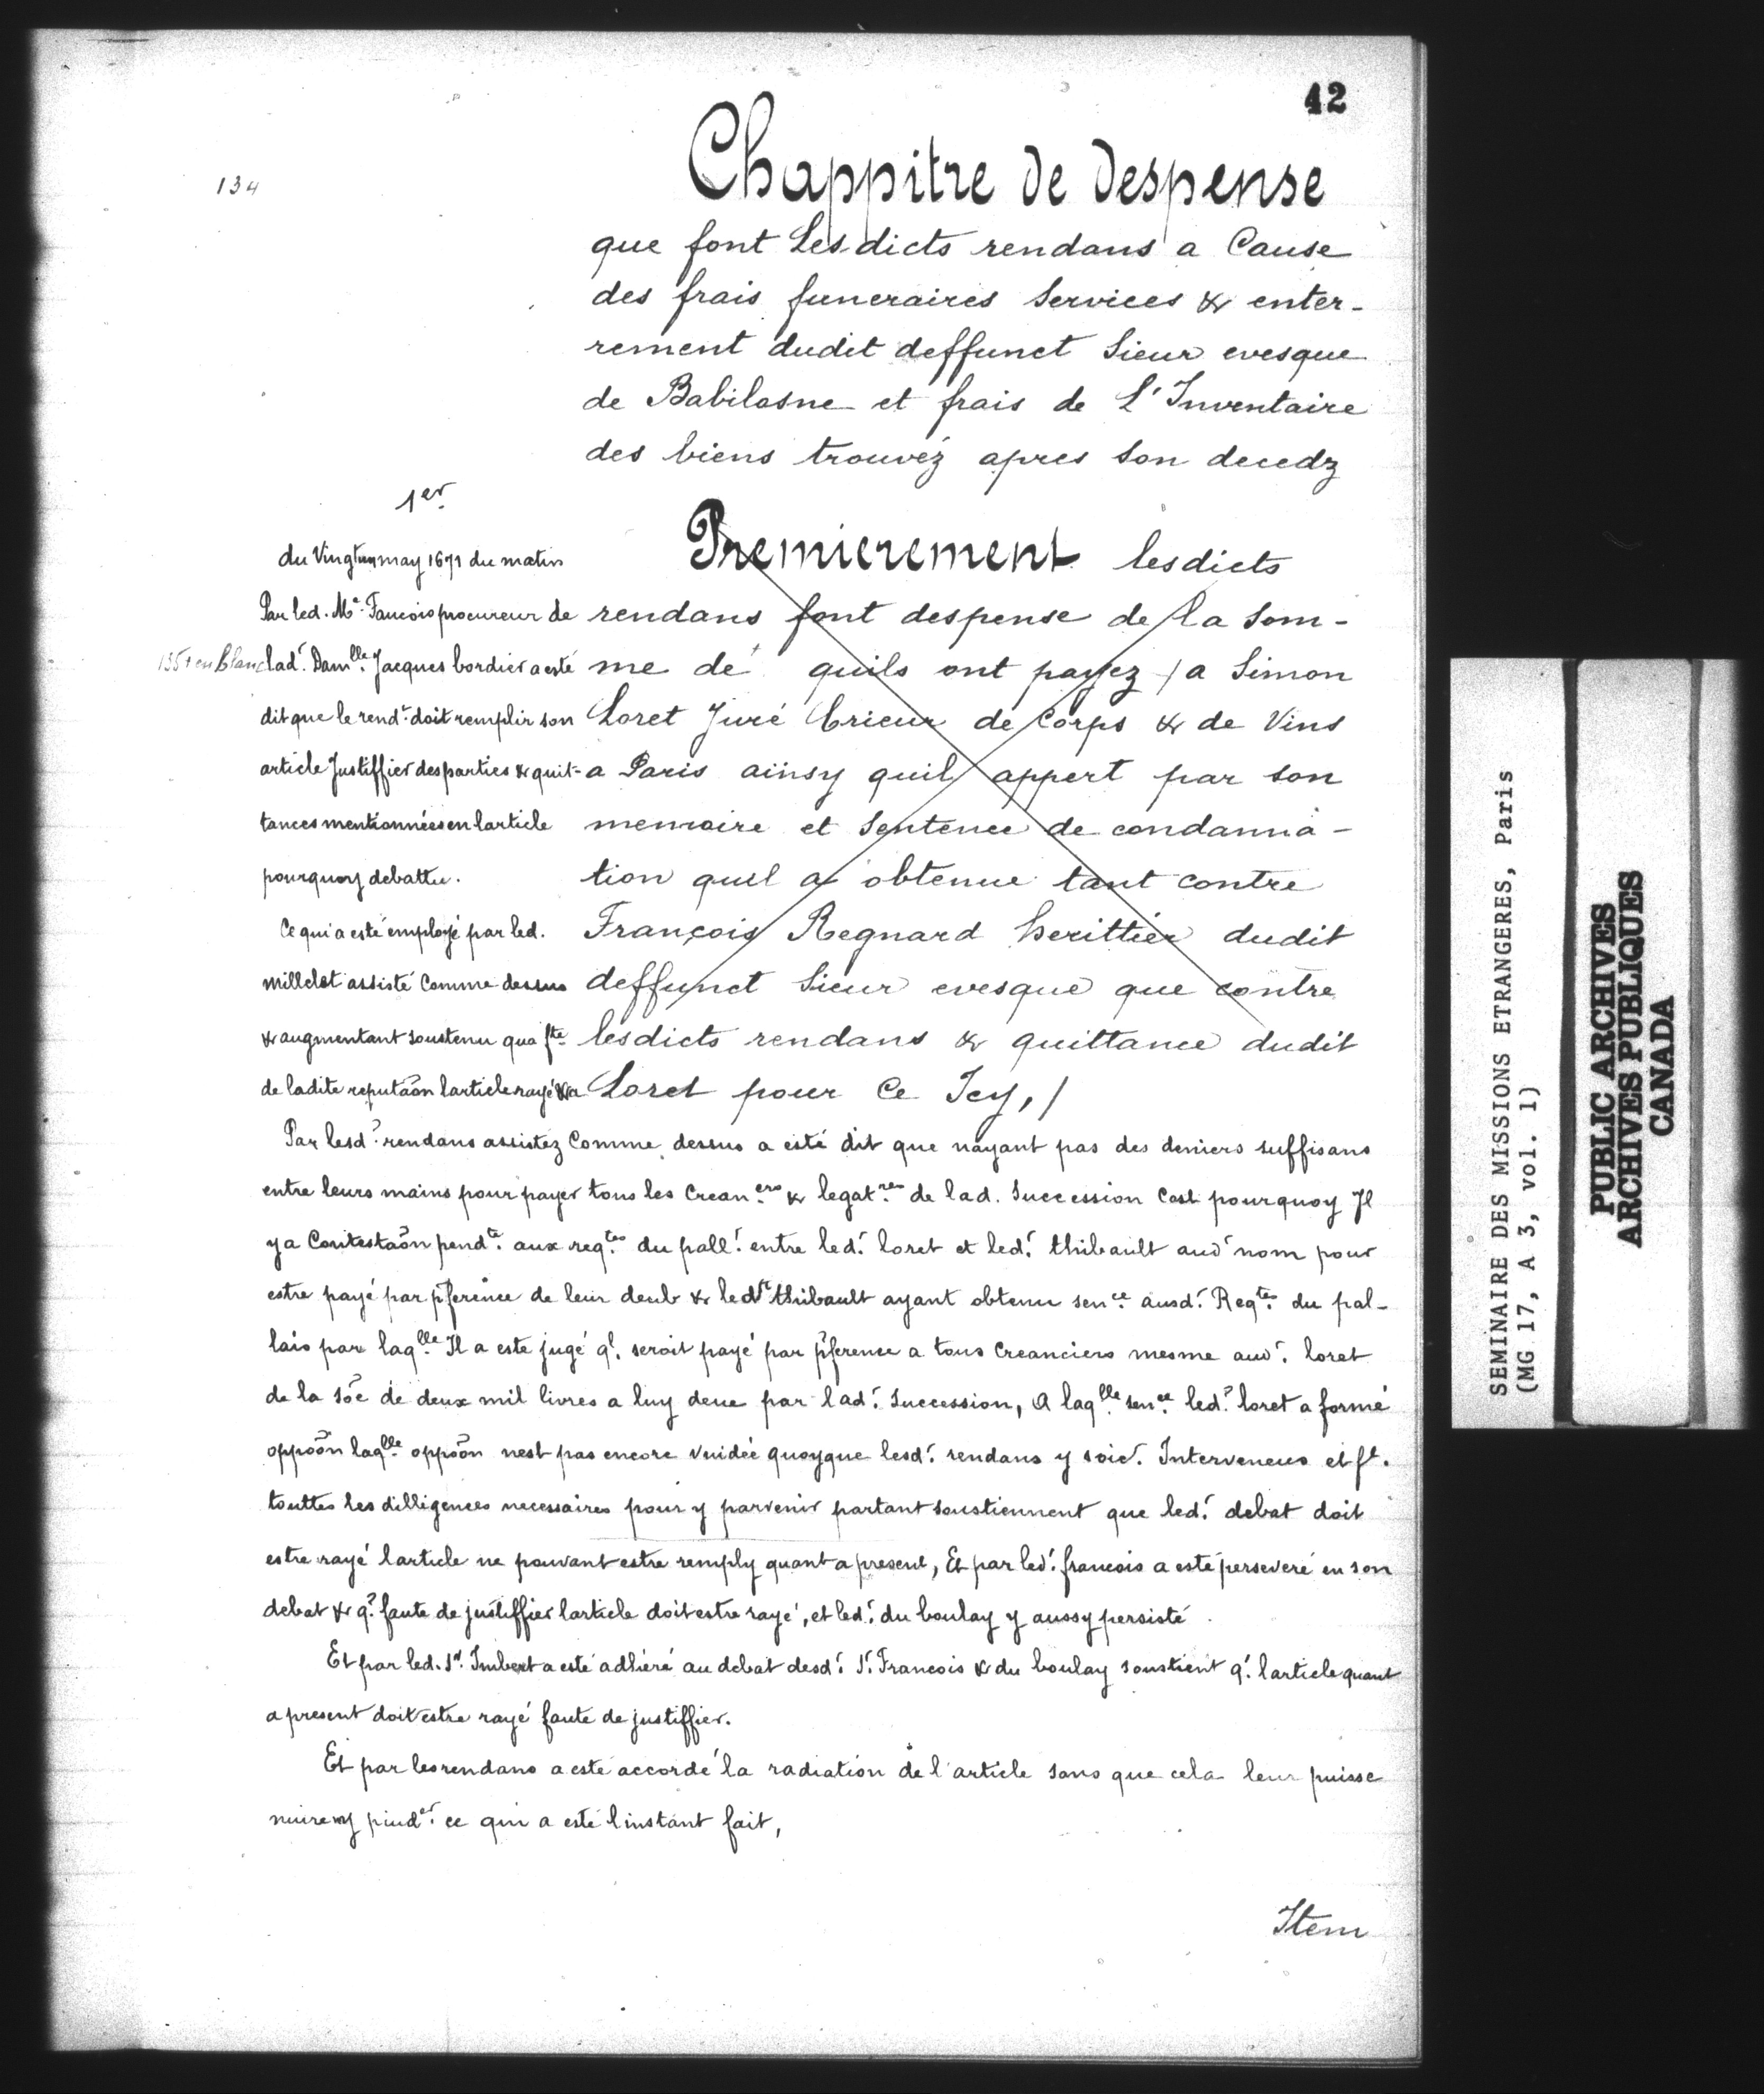 42
134
Chappitre de despense
que font Lesdicts rendans a Cause
des frais funeraires Services & enter-
rement dudit deffunct Sieur evesque
de Babilosne et frais de L'Inventaire
des biens trouvéz apres son decedz
1er
du Vingt may 1671 du matin
Par led. Me. Francois procureur de
135 en blanc
lad. Damlle. Jacques bordier a esté
dit que le rendt. doit remplir son
article Justiffier des parties & quit-
tances mentionnées en larticle
pourquoy debattu.
Ce qui a esté employé par led.
millelot assisté Comme dessus
& augmentant soustenu qua fte.
de ladite reputaōn larticle rayé &a
Premierement lesdicts
rendans font despense de la Som-
me de quils ont payez / a Simon
Loret Juré Crieur de Corps & de Vins
a Paris ainsy quil appert par son
memoire et Sentence de condanna-
tion quil a obtenue tant contre
François Regnard herittier dudit
deffunct Sieur evesque que contre
lesdicts rendans & quittance dudit
Loret pour Ce Icy, /
Par lesd. rendans assistez Comme dessus a esté dit que nayant pas des deniers suffisans
entre leurs mains pour payer tous les Crean.ers & legat.res de lad. Succession Cest pourquoy Il
ya Contestaōn pendte. aux reqtes. du pall. entre led. loret et led. thibault aud nom pour
estre payé par pference de leur deub & led. thibault ayant obtenu sence. ausd. Reqtes. du pal-
lais par laqlle. Il a este jugé q. seroit payé par pference a tous Creanciers mesme aud. loret
de la sōe de deux mil livres a luy deue par lad. Succession, A laqlle. sence. led. loret a formé
oppoōn laqlle. oppoōn nest pas encore vuidée quoyque lesd. rendans y soie. Intervenus et ft.
touttes les dilligences necessaires pour y parvenir partant soustiennent que led. debat doit
estre rayé larticle ne pouvant estre remply quant a present, Et par led. francois a esté perseveré en son
debat & q. faute de justiffier larticle doit estre rayé, et led. du boulay y aussy persisté
Et par led. Sr. Imbert a esté adheré au debat desd. S. Francois & du boulay soustient q. larticle quant
a present doit estre rayé faute de justiffier.
Et par les rendans a esté accordé la radiation de l'article sans que cela leur puisse
nuire ny piuder. ce qui a esté linstant fait,
Item
SEMINAIRE DES MISSIONS ETRANGERES, Paris
(MG 17, A 3, vol. 1)
PUBLIC ARCHIVES
ARCHIVES PUBLIQUES
CANADA